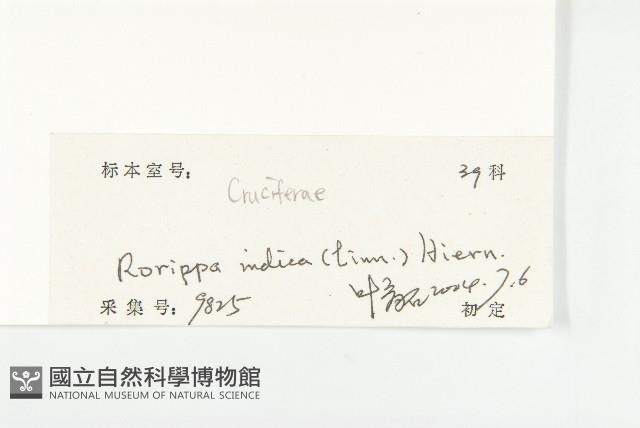 标本室号: 39科
Cruciferae
Rorippa indica (Linn.) Hiern.
采集号: 9825 2004.7.6 初定
國立自然科學博物館
NATIONAL MUSEUM OF NATURAL SCIENCE